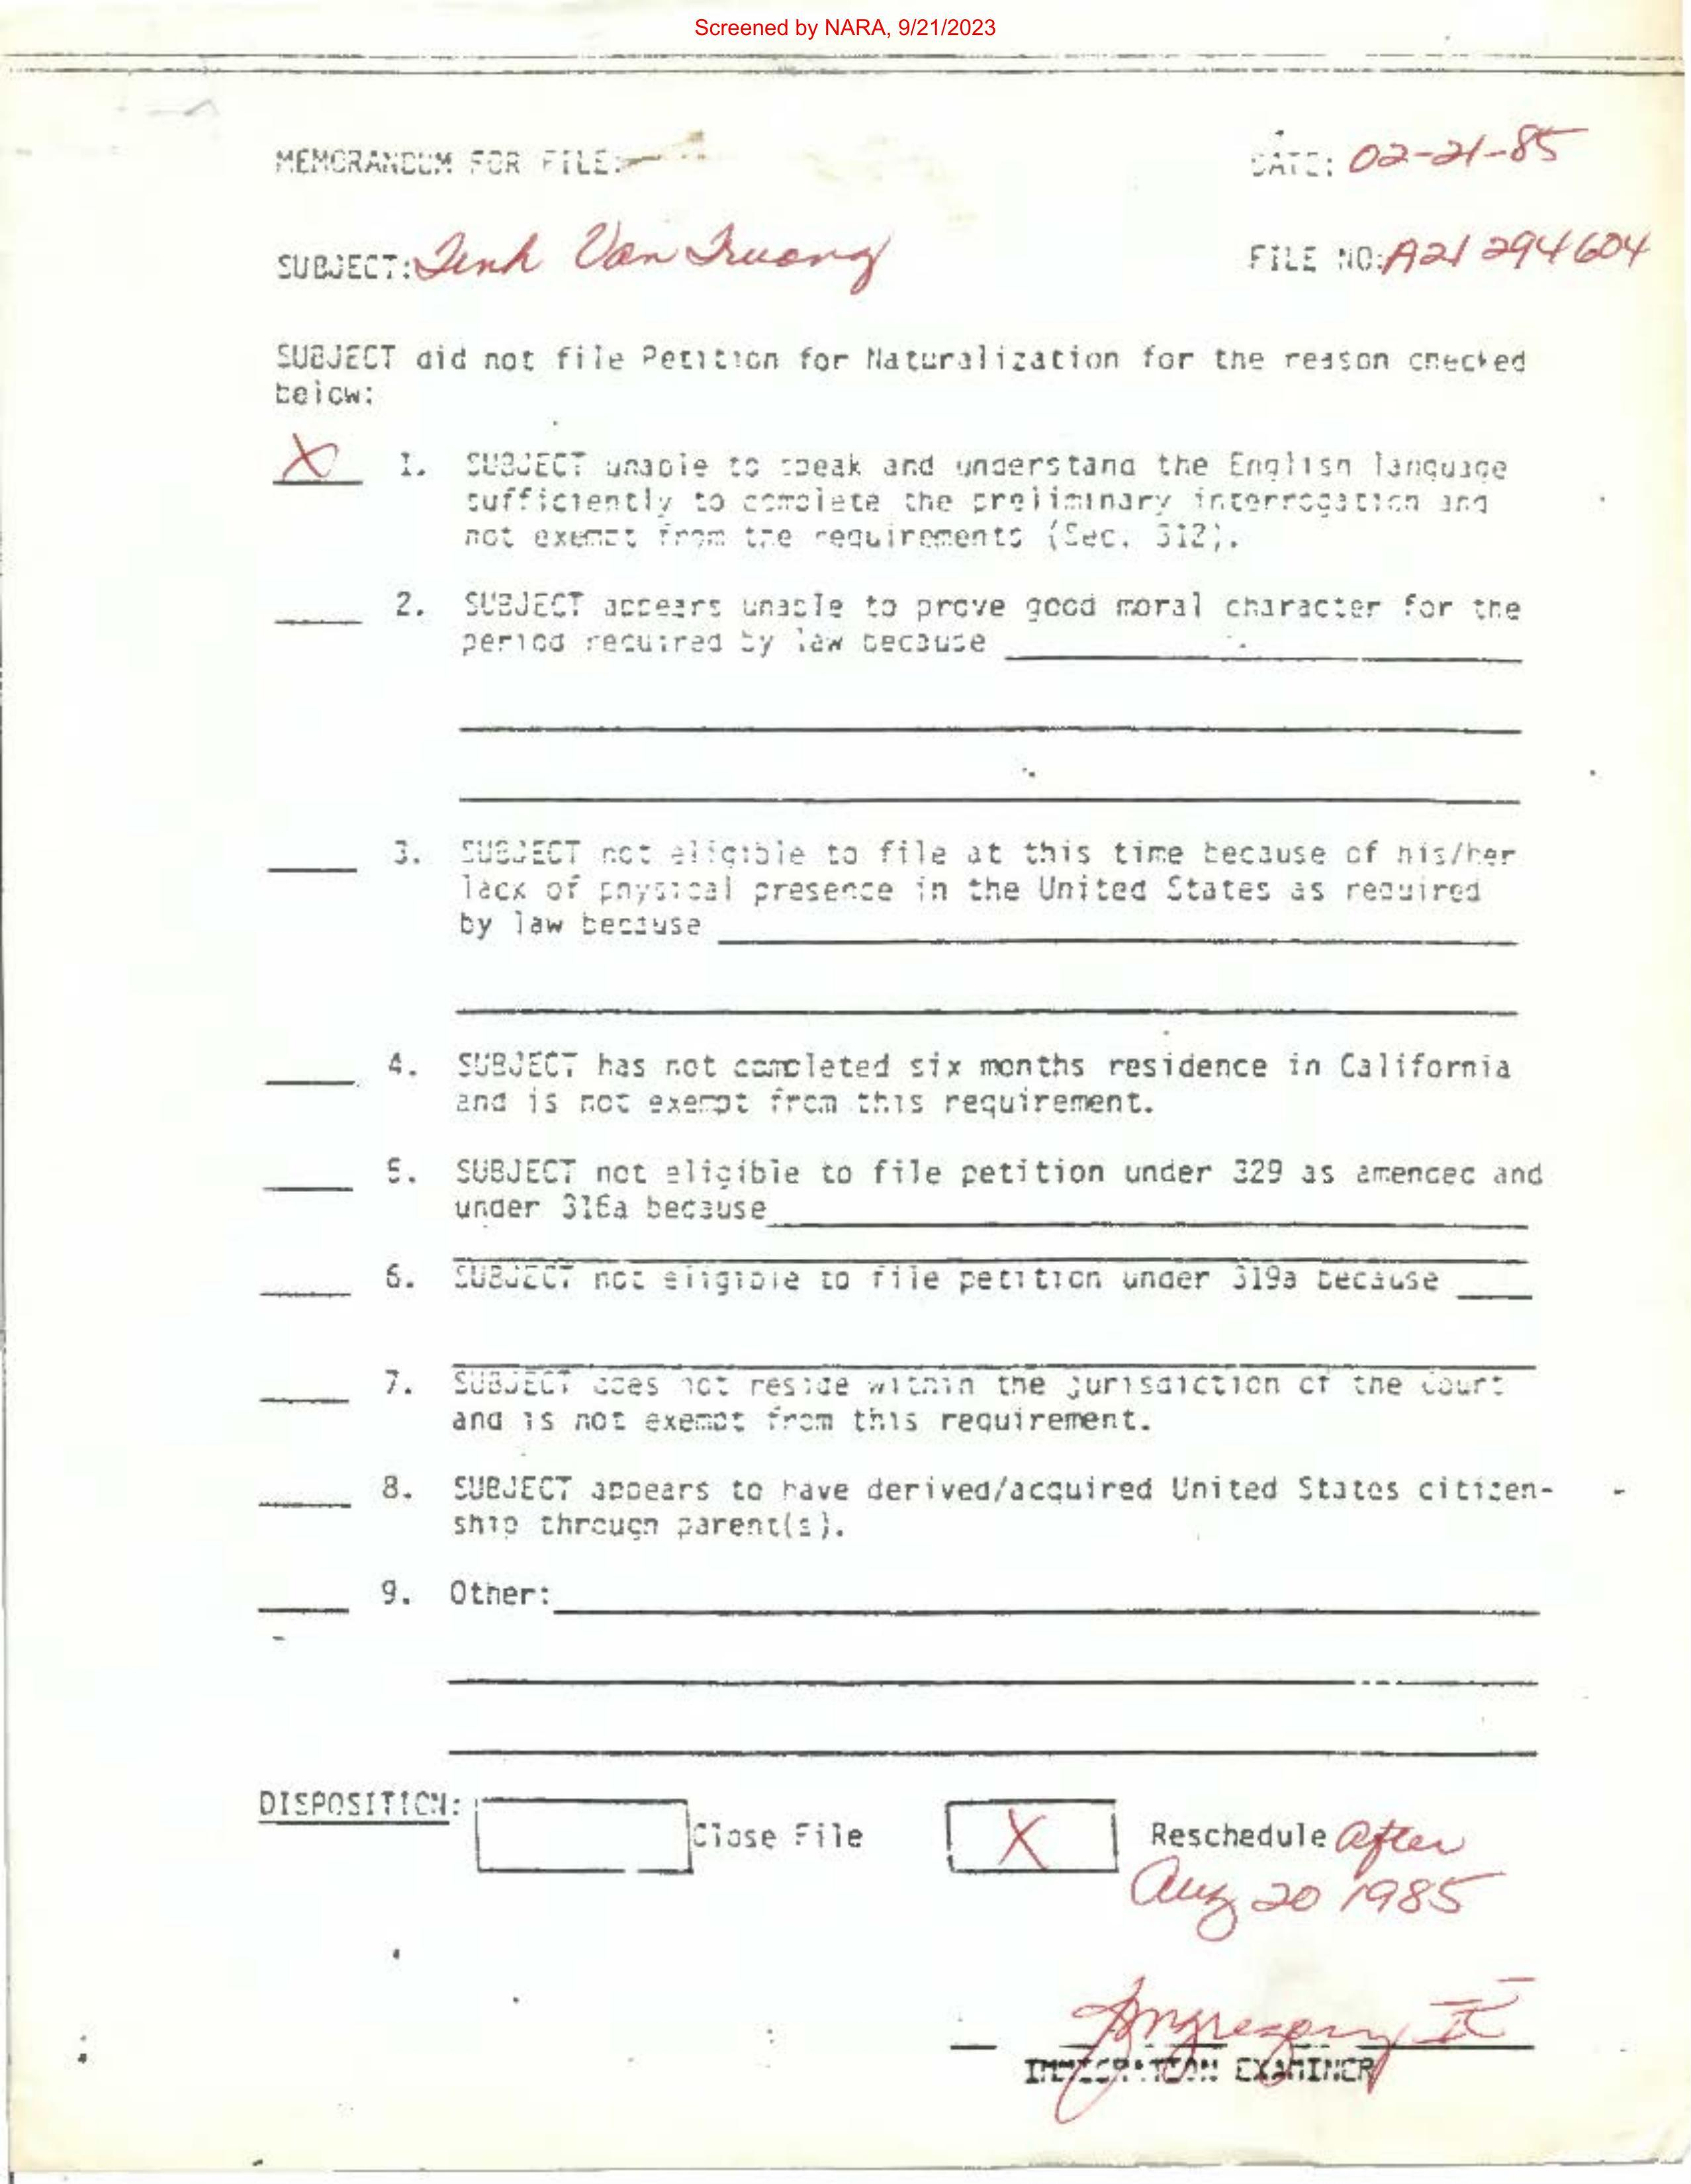 Screened by NARA, 9/21/2023
MEMORANDUM FOR FILE:
DATE: 02-21-85
SUBJECT: Tenh Van Truong
FILE NO: A21 294 604
SUBJECT did not file Petition for Naturalization for the reason checked
below:
X 1. SUBJECT unable to speak and understand the English language
sufficiently to complete the preliminary interrogation and
not exempt from the requirements (Sec. 312).
2. SUBJECT appears unable to prove good moral character for the
period required by law because
3. SUBJECT not eligible to file at this time because of his/her
lack of physical presence in the United States as required
by law because
4. SUBJECT has not completed six months residence in California
and is not exempt from this requirement.
5. SUBJECT not eligible to file petition under 329 as amended and
under 316a because
6. SUBJECT not eligible to file petition under 319a because
7. SUBJECT does not reside within the jurisdiction of the Court
and is not exempt from this requirement.
8. SUBJECT appears to have derived/acquired United States citizen-
ship through parent(s).
9. Other:
DISPOSITION: Close File X Reschedule after
Aug 20 1985
IMMIGRATION EXAMINER